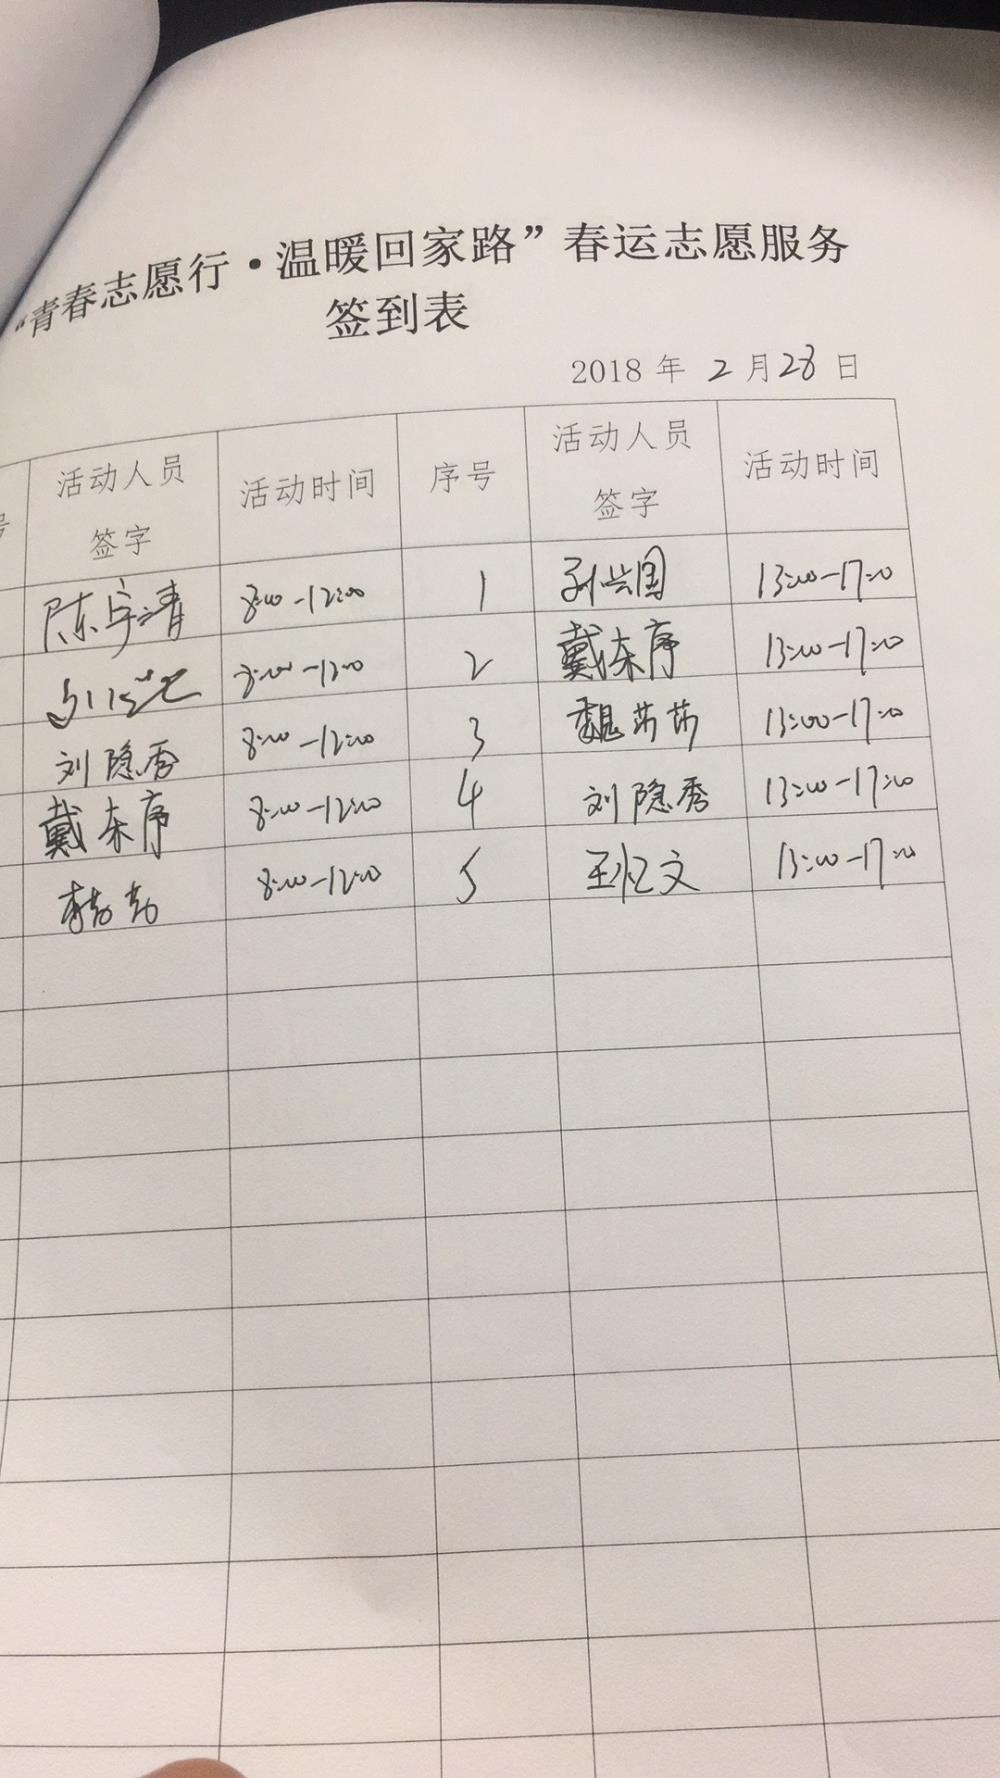 “青春志愿行·温暖回家路”春运志愿服务
签到表
2018 年 2 月 28 日
号 活动人员签字 活动时间 序号 活动人员签字 活动时间
陈宇清 8:00-12:00 1 孙兴国 13:00-17:00
8:00-12:00 2 戴东序 13:00-17:00
刘隐秀 8:00-12:00 3 魏莎莎 13:00-17:00
戴东序 8:00-12:00 4 刘隐秀 13:00-17:00
8:00-12:00 5 王 文 13:00-17:00